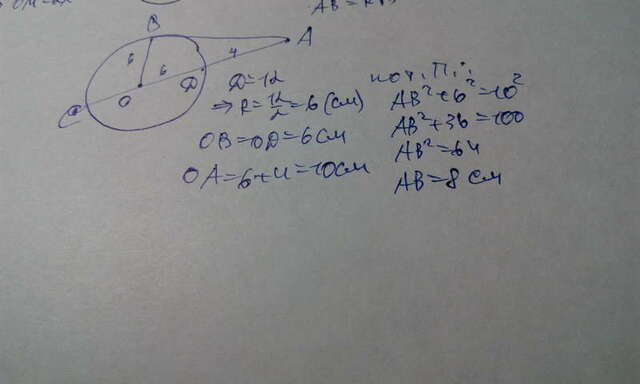 AB=
B
A
6
6
4
O
D
C
D=12
⇒ R=12/2=6 (см)
OB=OD=6см
OA=6+4=10см
по т. П.:
AB²+6²=10²
AB²+36=100
AB²=64
AB=8 см